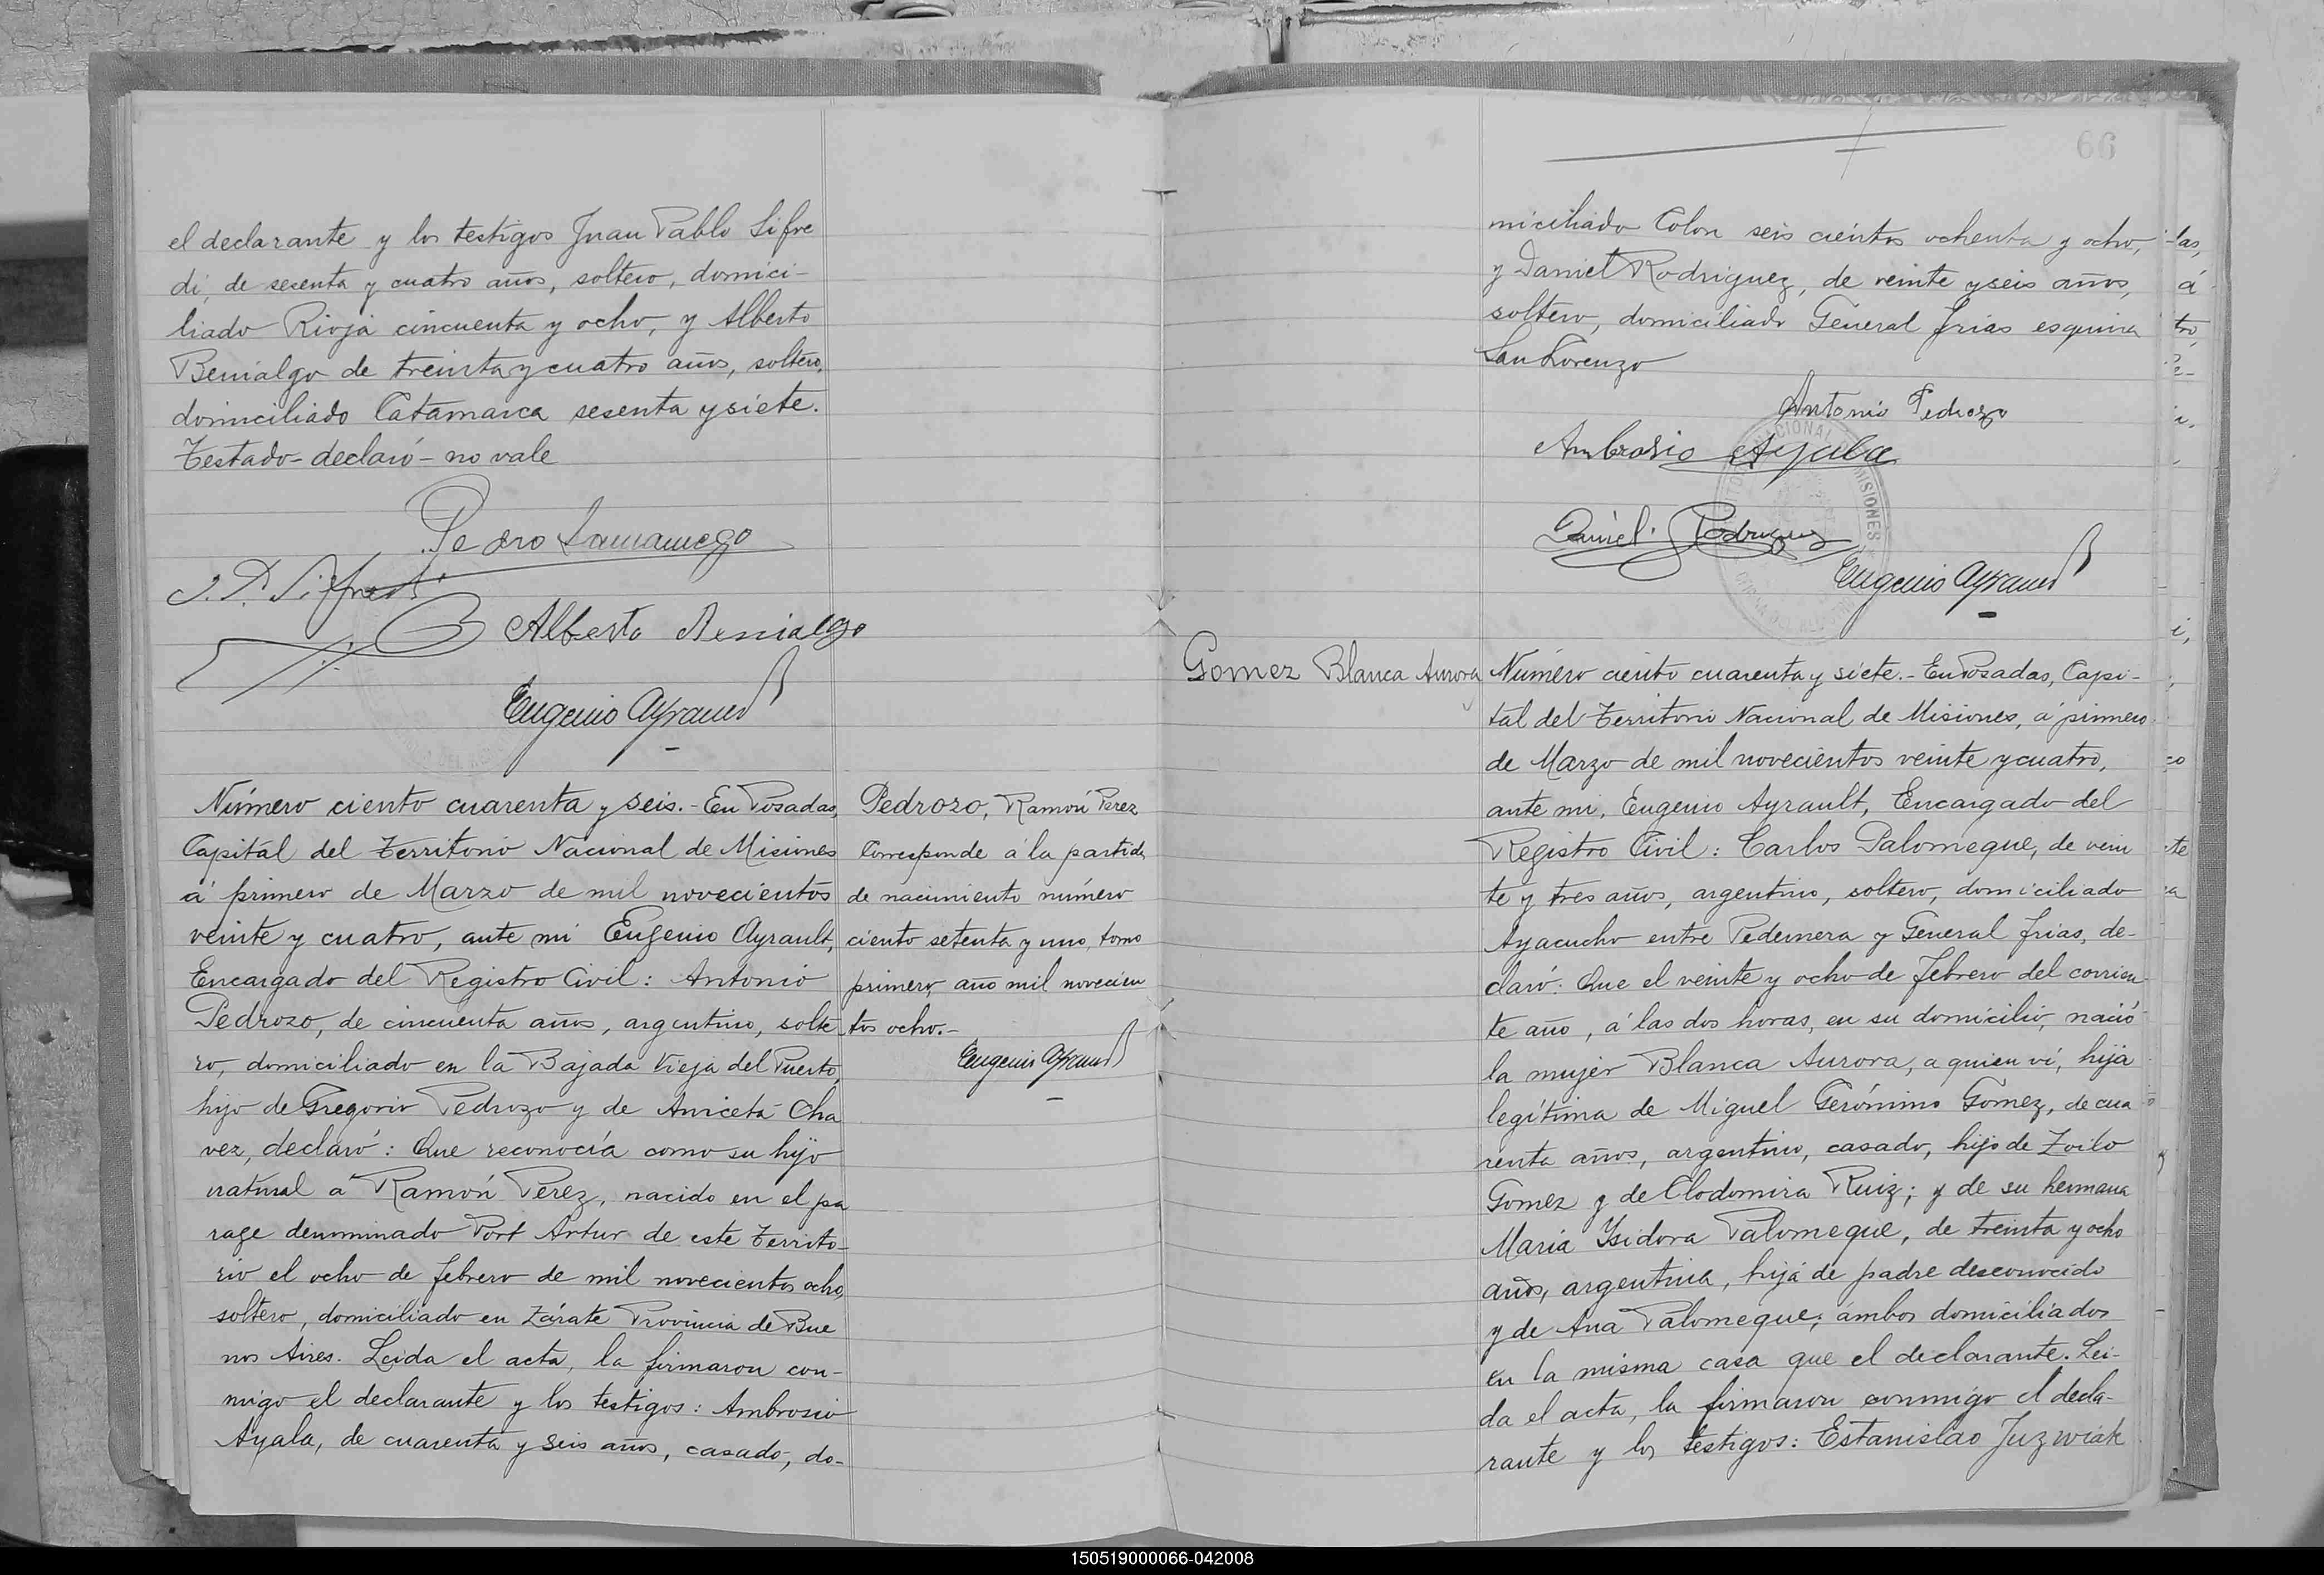 el declarante y los testigos Juan Pablo Sifre
di, de sesenta y cuatro años, soltero, domici-
liado Rioja cincuenta y ocho, y Alberto
Benialgo de treinta y cuatro años, soltero,
domiciliado Catamarca sesenta y siete.
Testado - declaró - no vale
Pedro Samaniego
J. P. Sifredi
Alberto Benialgo
Eugenio Ayrault
Número ciento cuarenta y seis. - En Posadas,
Capital del Territorio Nacional de Misiones
á primero de Marzo de mil novecientos
veinte y cuatro, ante mi Eugenio Ayrault,
Encargado del Registro Civil: Antonio
Pedrozo, de cincuenta años, argentino, solte-
ro, domiciliado en la Bajada Vieja del Puerto,
hijo de Gregorio Pedrozo y de Aniceta Cha
vez, declaró: Que reconocía como su hijo
natural á Ramón Perez, nacido en el pa
rage denominado Port Artur de este Territo-
rio el ocho de febrero de mil novecientos ocho,
soltero, domiciliado en Zárate Provincia de Bue
nos Aires. Leida el acta, la firmaron con-
migo el declarante y los testigos: Ambrosio
Ayala, de cuarenta y seis años, casado, do-
Pedrozo, Ramón Perez
Corresponde á la partida
de nacimiento número
ciento setenta y uno, tomo
primero, año mil novecien
tos ocho.-
Eugenio Ayrault
66
miciliado Colon seis cientos ochenta y ocho,
y Daniel Rodriguez, de veinte y seis años,
soltero, domiciliado General Frias esquina
San Lorenzo
Antonio Pedrozo
Ambrosio Ayala
Daniel Rodriguez
Eugenio Ayrault
Gomez Blanca Aurora
Número ciento cuarenta y siete. - En Posadas, Capi-
tal del Territorio Nacional de Misiones, á primero
de Marzo de mil novecientos veinte y cuatro,
ante mi, Eugenio Ayrault, Encargado del
Registro Civil: Carlos Palomeque, de vein
te y tres años, argentino, soltero, domiciliado
Ayacucho entre Pedernera y General Frias, de-
claró: Que el veinte y ocho de febrero del corrien-
te año, á las dos horas, en su domicilio, nació
la mujer Blanca Aurora, a quien ví, hija
legítima de Miguel Gerónimo Gomez, de cua
renta años, argentino, casado, hijo de Zoilo
Gomez y de Clodomira Ruiz; y de su hermana
Maria Ysidora Palomeque, de treinta y ocho
años, argentina, hija de padre desconocido
y de Ana Palomeque; ambos domiciliados
en la misma casa que el declarante. Lei-
da el acta, la firmaron conmigo el decla-
rante y los testigos: Estanislao Juzwiak
150519000066-042008